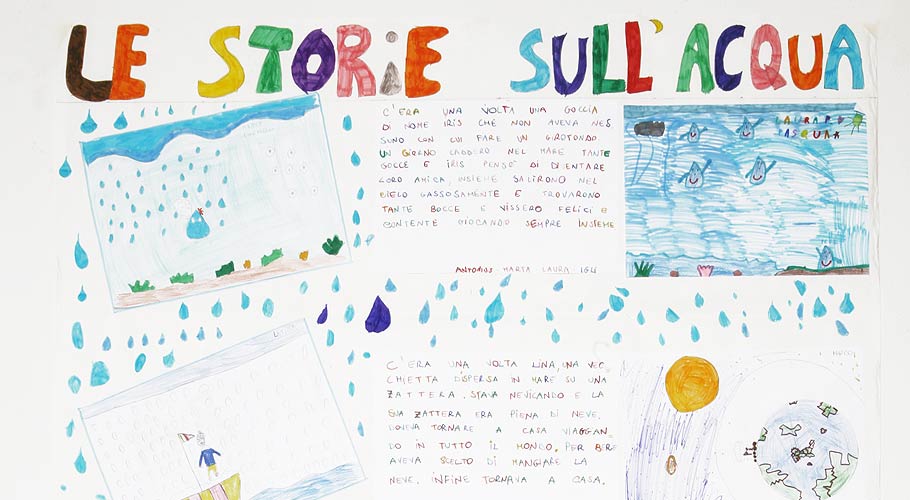 LE STORiE SULL'ACQUA
C'ERA UNA VOLTA UNA GOCCIA
DI NOME IRIS CHE NON AVEVA NES
SUNO CON CUI FARE UN GIROTONDO
UN GIORNO CADDERO NEL MARE TANTE
GOCCE E IRIS PENSO' DI DIVENTARE
LORO AMICA INSIEME SALIRONO NEL
CIELO GASSOSAMENTE E TROVARONO
TANTE GOCCE E VISSERO FELICI E
CONTENTE GIOCANDO SEMPRE INSIEME
ANTONIOS MARTA LAURA IGLI
C'ERA UNA VOLTA LINA, UNA VEC
CHIETTA DISPERSA IN MARE SU UNA
ZATTERA, STAVA NEVICANDO E LA
SUA ZATTERA ERA PIENA DI NEVE,
DOVEVA TORNARE A CASA VIAGGAN
DO IN TUTTO IL MONDO, PER BERE
AVEVA SCELTO DI MANGIARE LA
NEVE, INFINE TORNAVA A CASA.